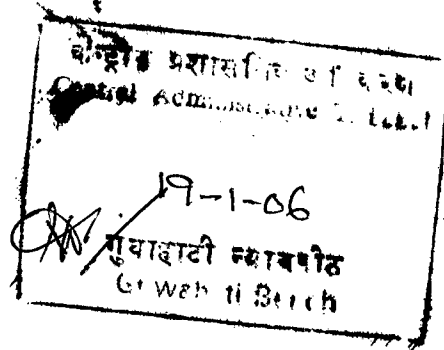 केन्द्रीय प्रशासनिक अधिकरण
Central Administrative Tribunal
19-1-06
गुवाहाटी न्यायपीठ
Guwahati Bench